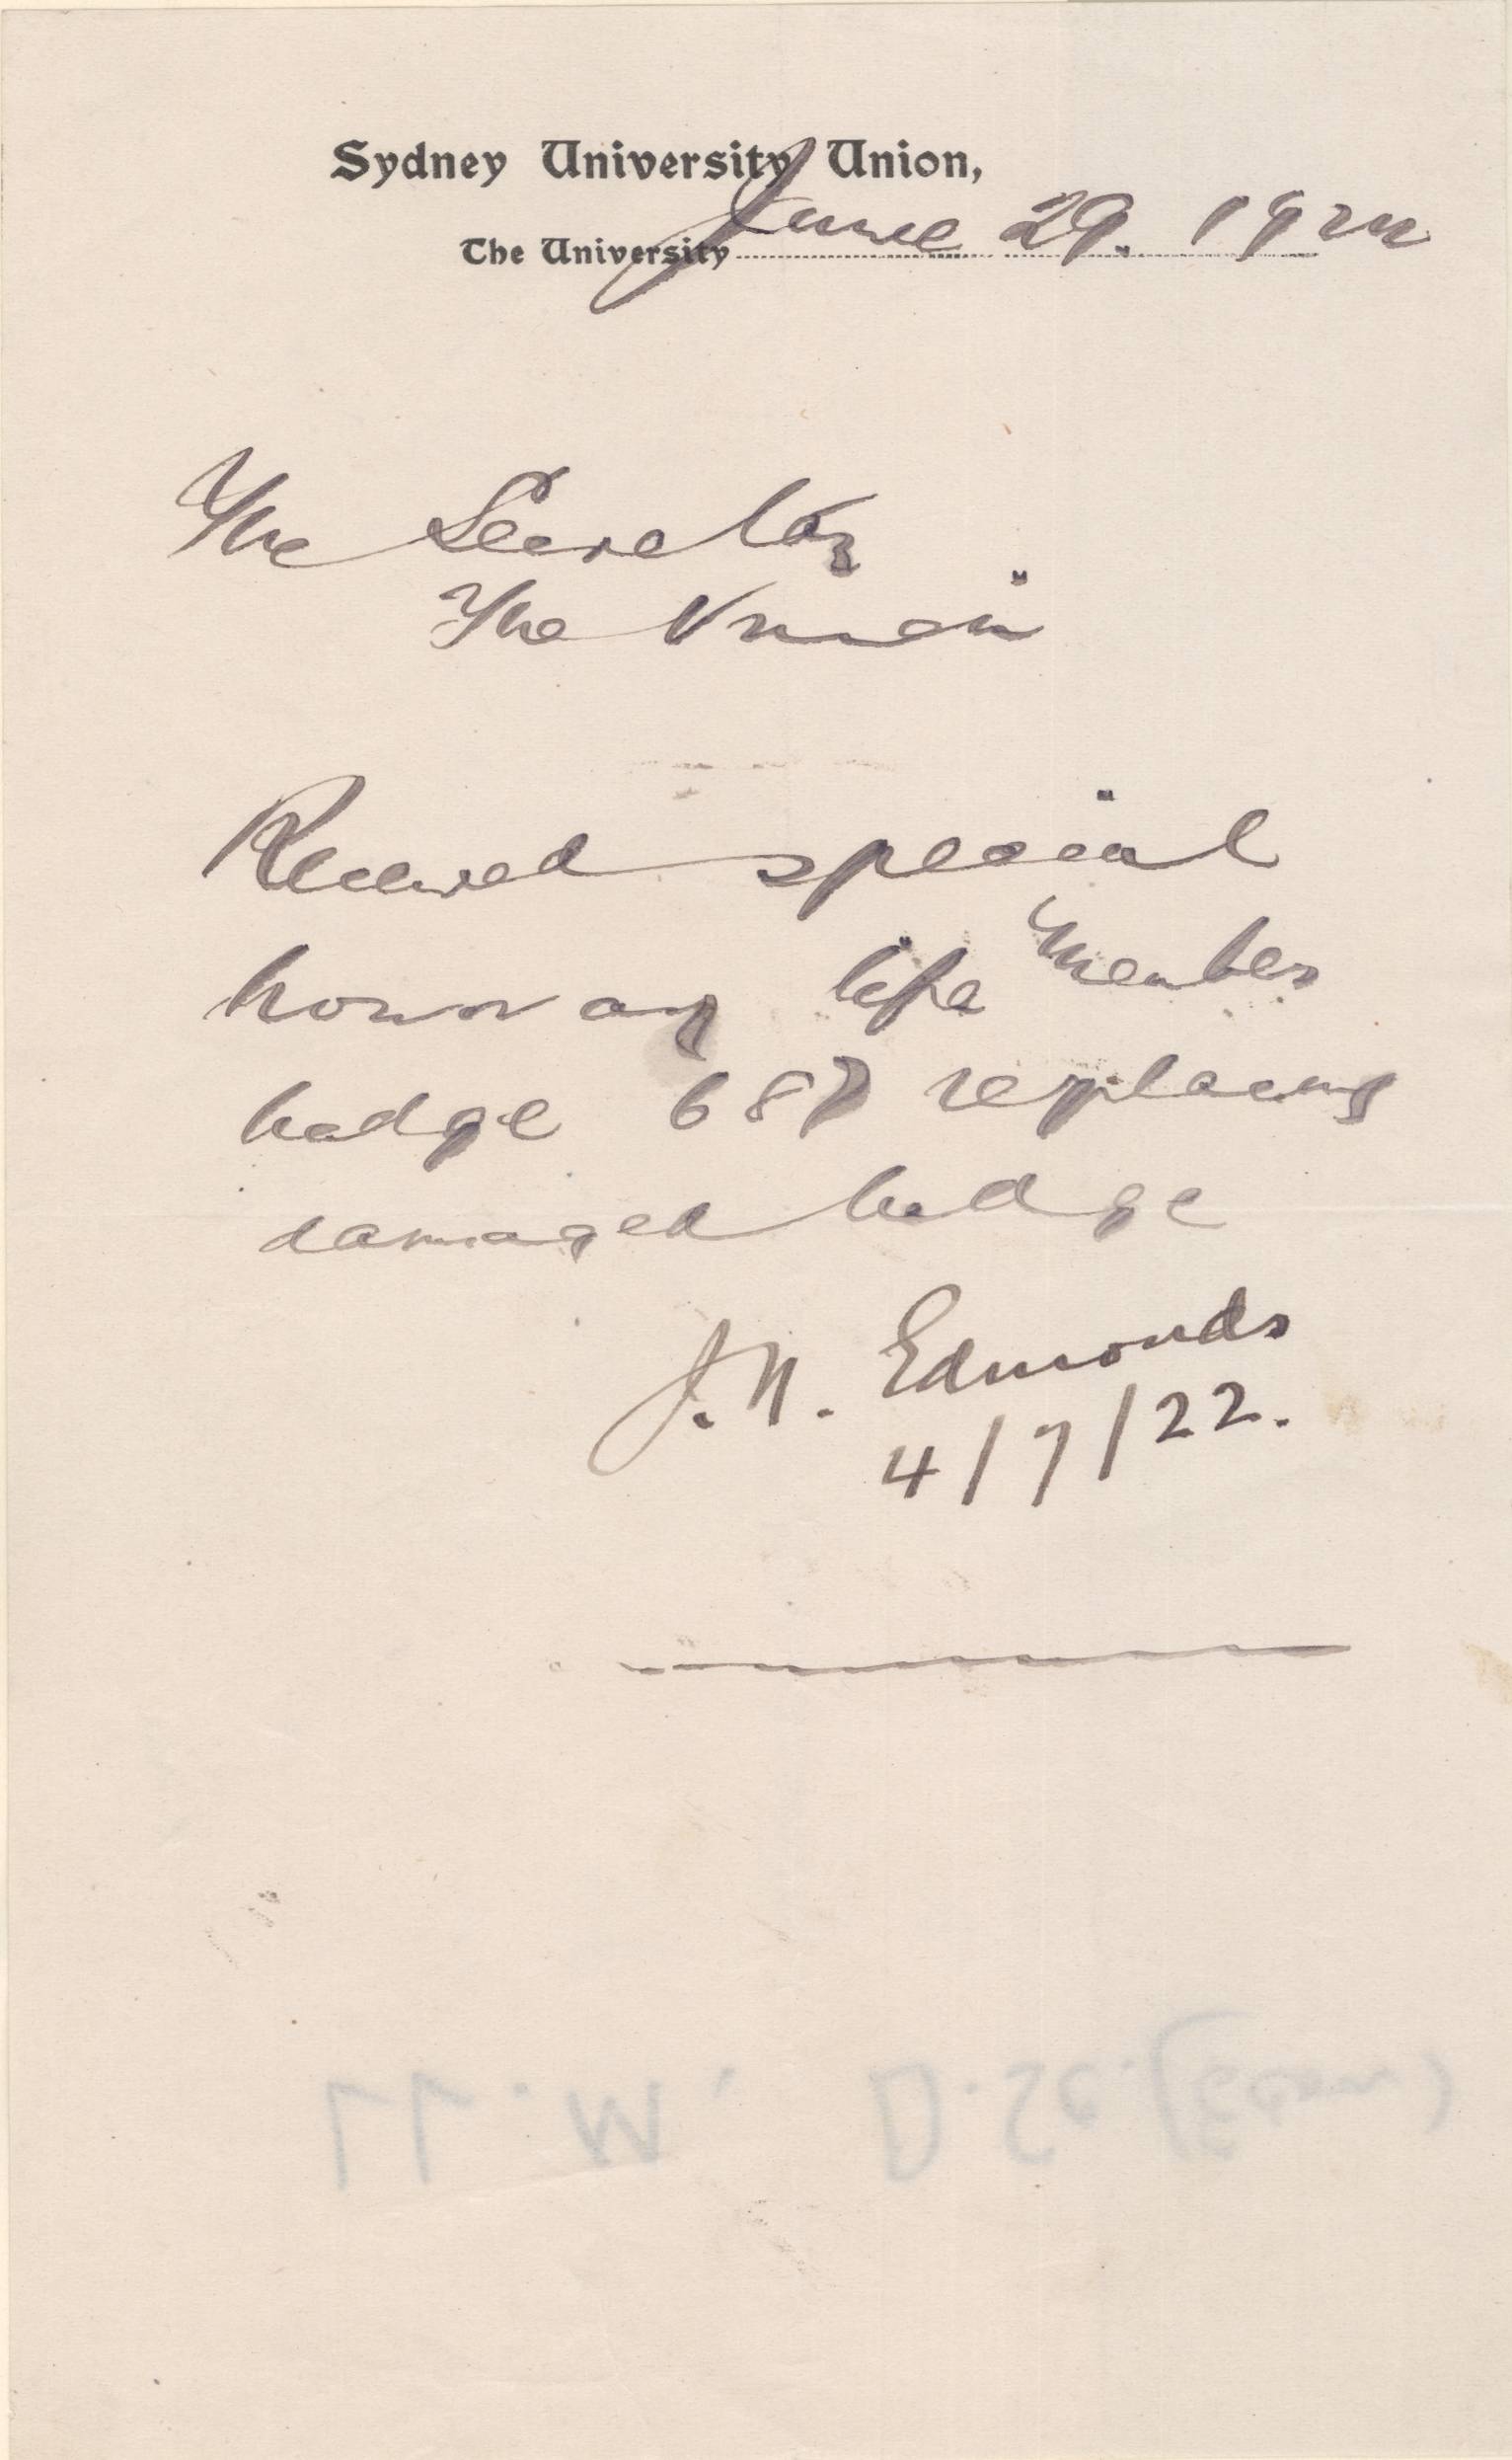 Sydney University Union,
The University June 29. 1922
The Secretary
The Union
Received special
honorary life Member
badge 687 replacing
damaged badge
J.N. Edmonds
4/7/22.